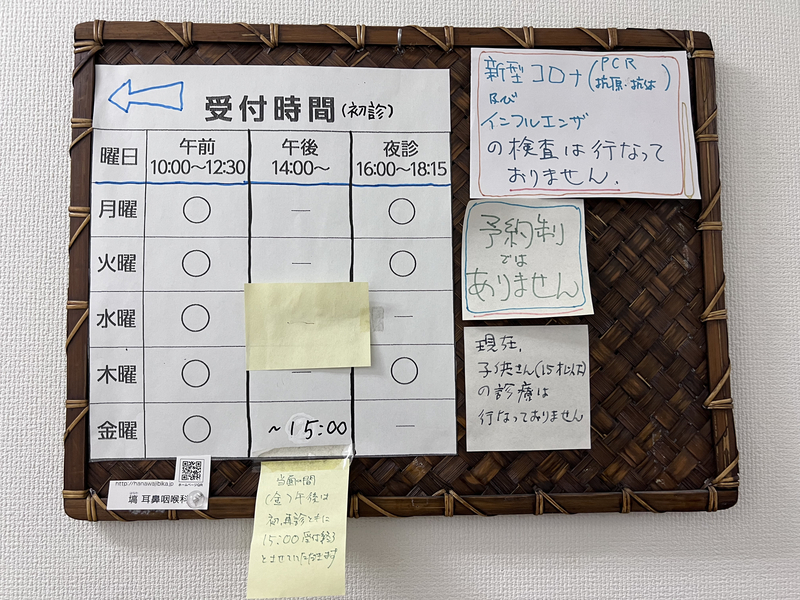 受付時間(初診)
曜日 午前 10:00～12:30 午後 14:00～ 夜診 16:00～18:15
月曜 ○ — ○
火曜 ○ — ○
水曜 ○ — —
木曜 ○ — ○
金曜 ○ ~15:00 —
http://hanawajibika.jp
塙 耳鼻咽喉科
当面の間
(金)午後は
初、再診ともに
15:00受付終了
とさせていただきます
新型コロナ(PCR 抗原・抗体)
及び
インフルエンザ
の検査は行なって
おりません.
予約制
では
ありません
現在,
子供さん(15才以下)
の診療は
行なっておりません